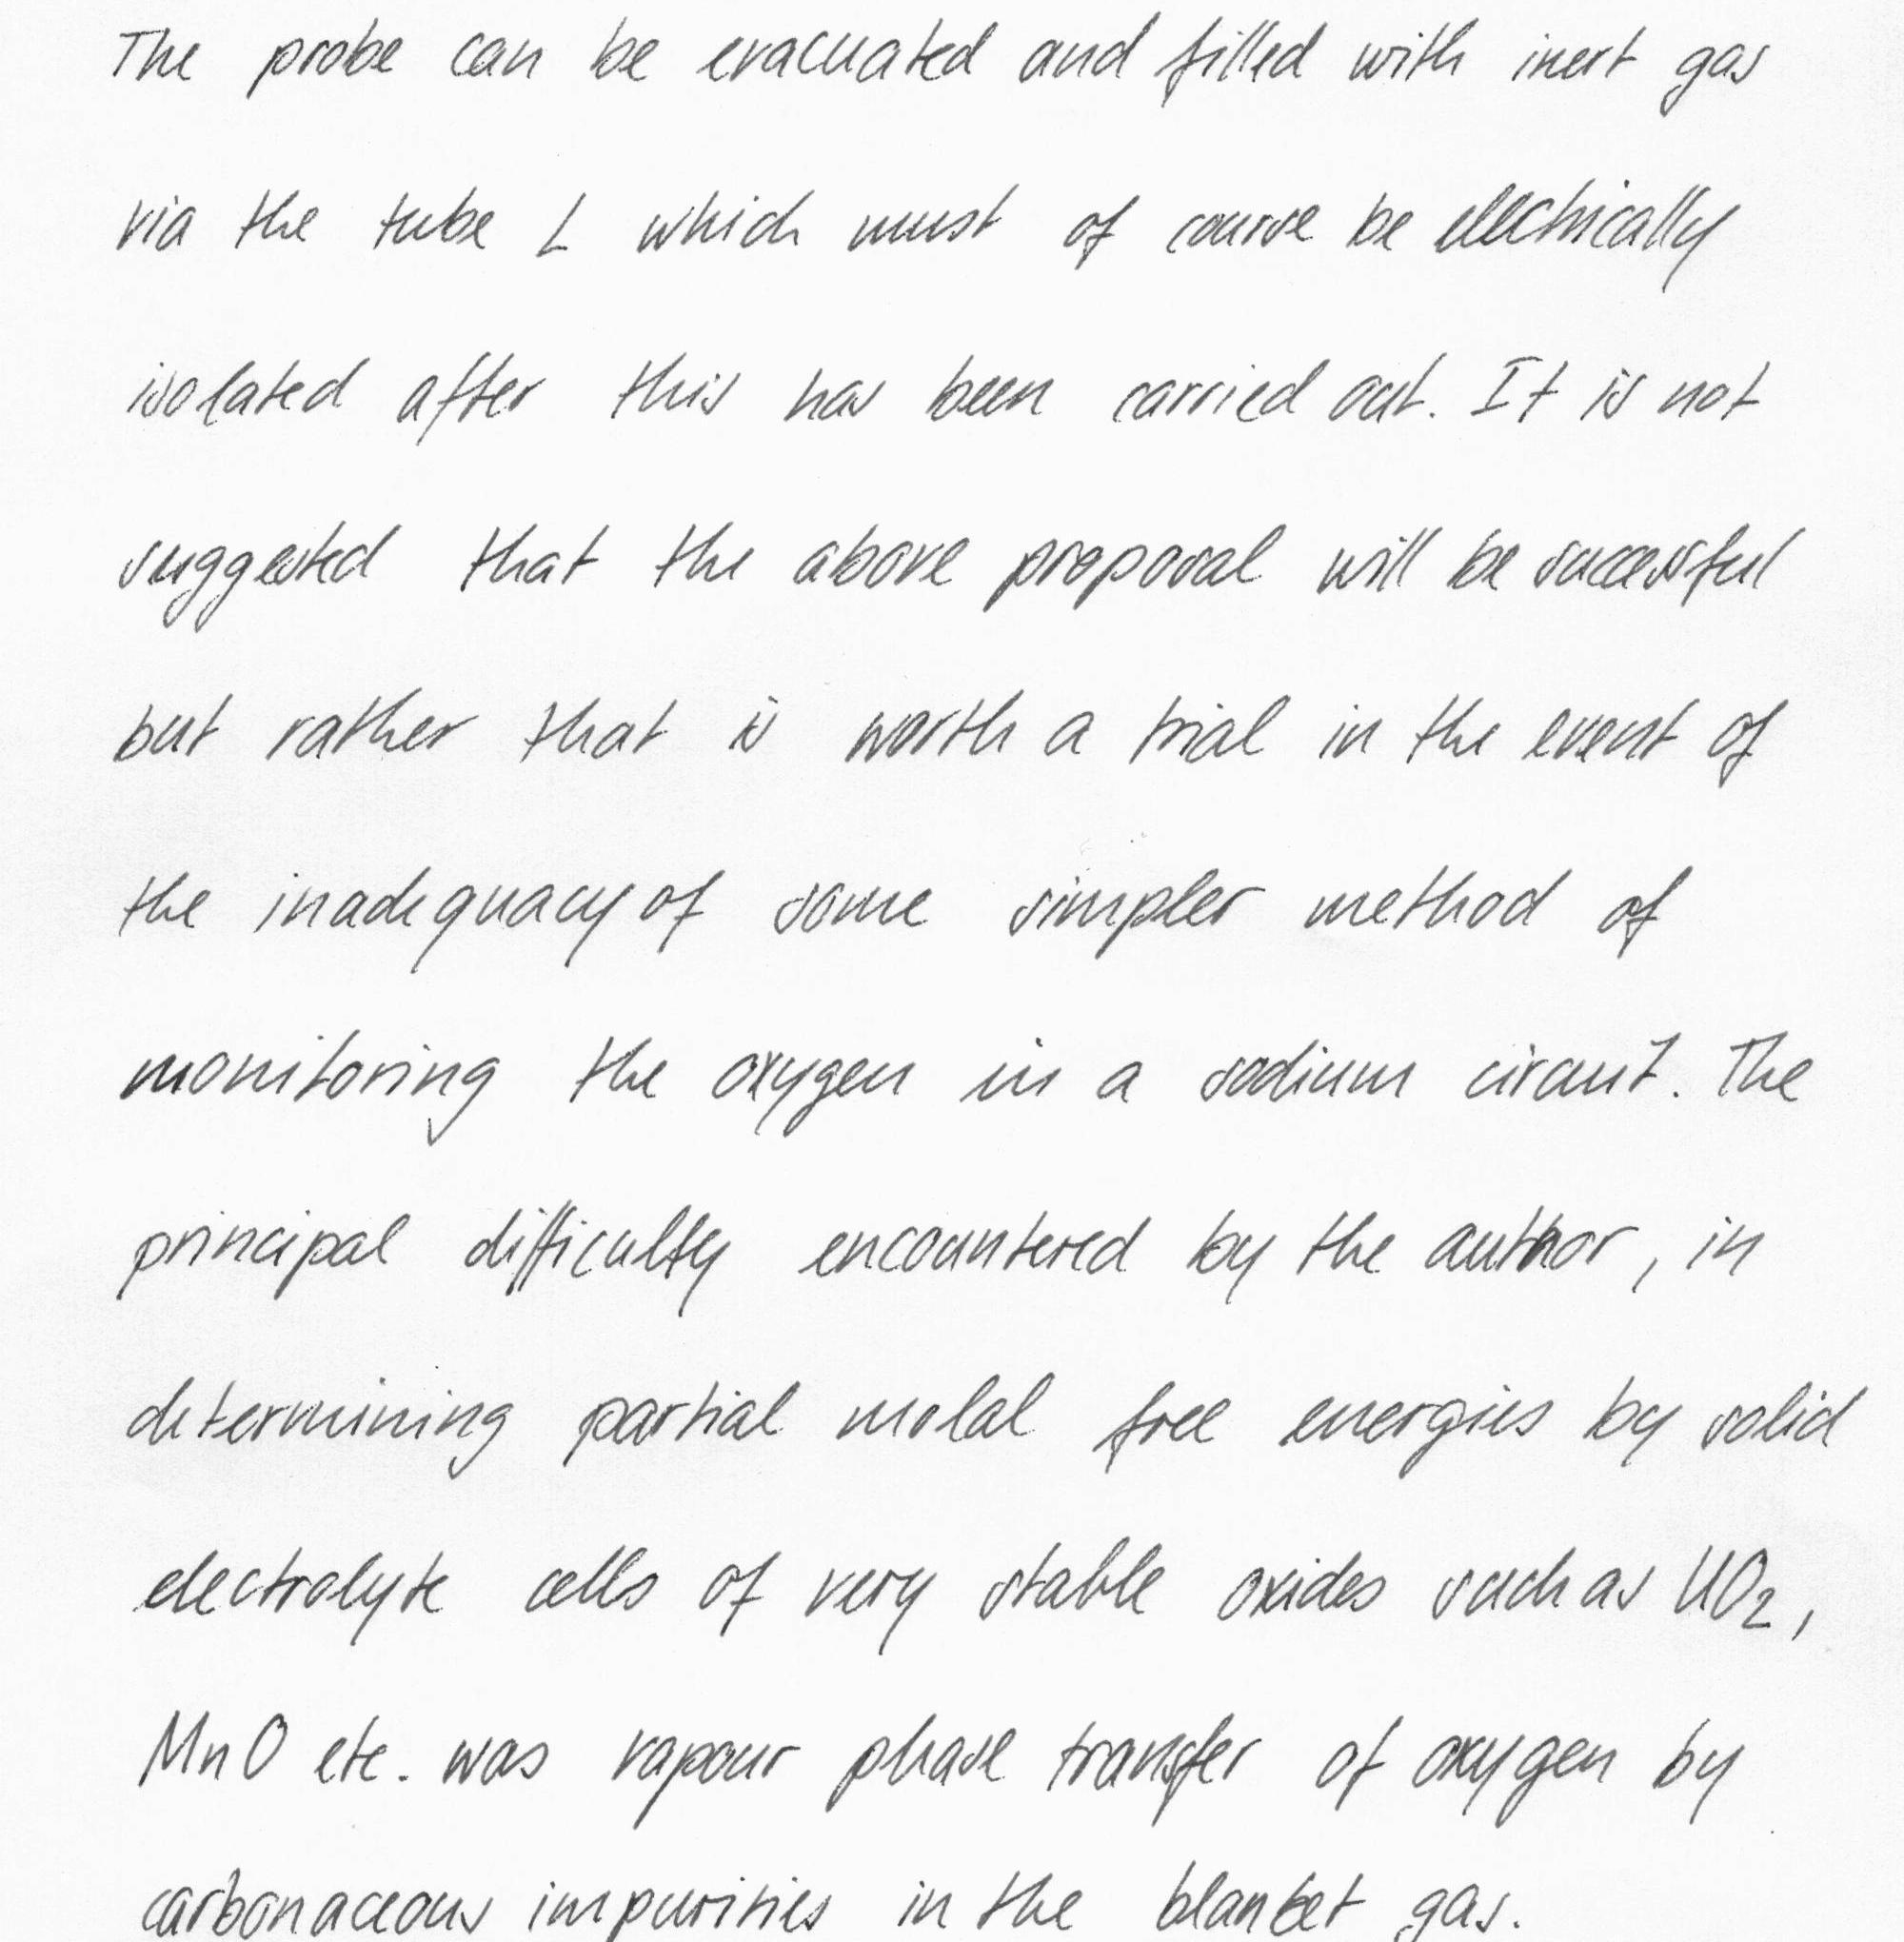 The probe can be evacuated and filled with inert gas
via the tube L which must of course be electrically
isolated after this has been carried out. It is not
suggested that the above proposal will be successful
but rather that is worth a trial in the event of
the inadequacy of some simpler method of
monitoring the oxygen in a sodium circuit. The
principal difficulty encountered by the author, in
determining partial molal free energies by solid
electrolyte cells of very stable oxides such as UO₂,
MnO etc. was vapour phase transfer of oxygen by
carbonaceous impurities in the blanket gas.